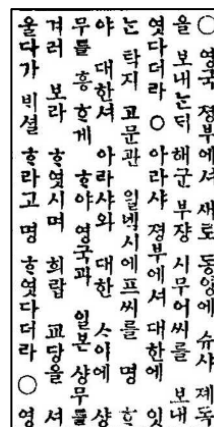 ○ 영국 졍부에셔 새로 동양에 슈사 졔독
을 보내ᄂᆞᆫᄃᆡ 해군 부쟝 시무어씨를 보내
엿다더라 ○ 아라샤 졍부에셔 대한에 잇
ᄂᆞᆫ 탁지 고문관 일넥시에프씨를 명ᄒᆞ
야 대한셔 아라샤와 대한 ᄉᆞ이에 샹
무를 흥ᄒᆞ게 ᄒᆞ야 영국과 일본 샹무를
겨러 보라 ᄒᆞ엿시며 희랍 교당을 셔
울다가 ᄇᆡ셜ᄒᆞ라고 명ᄒᆞ엿다더라 ○ 영